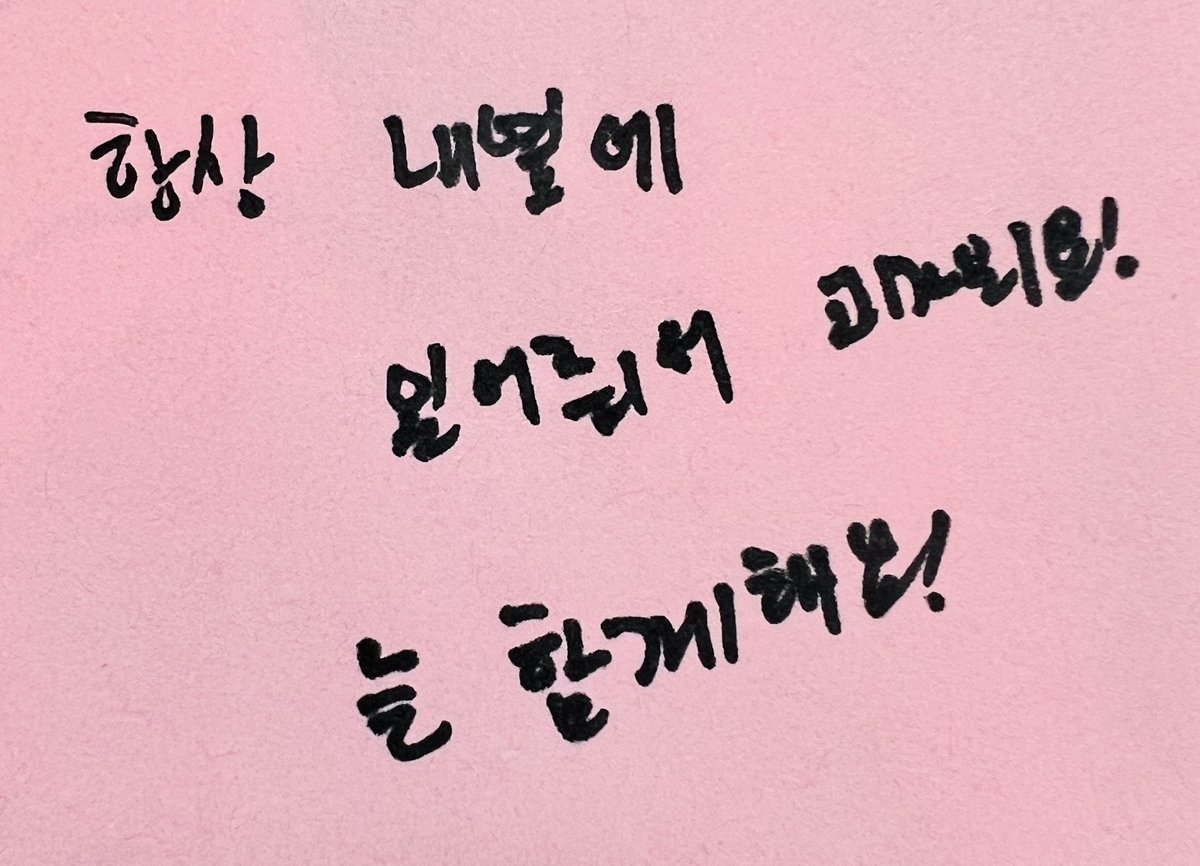 항상 내곁에
있어줘서 고마워요!
늘 함께해요!